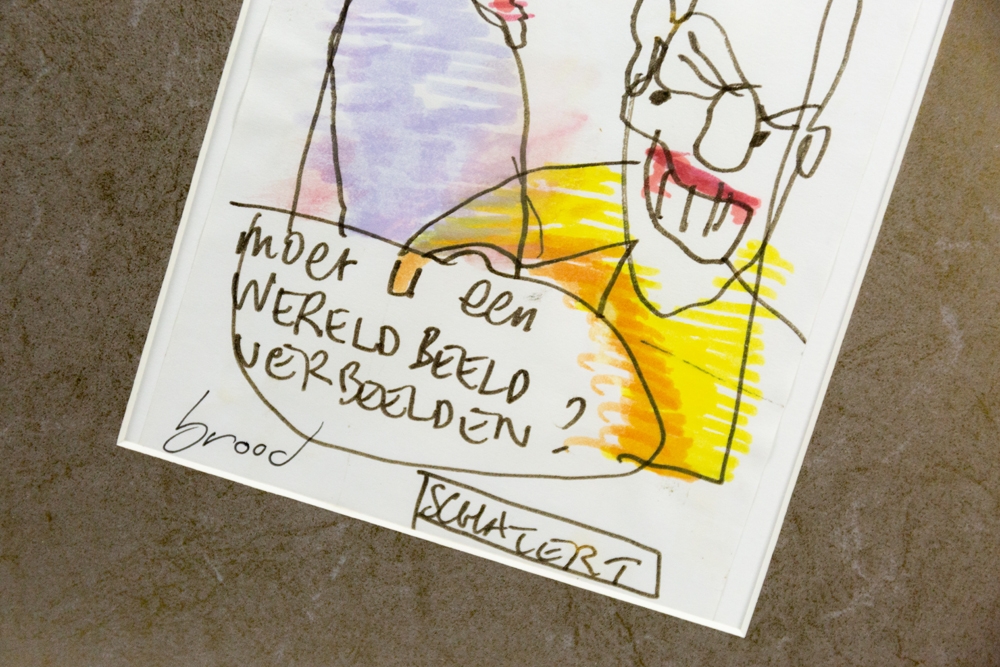 moet U een
WERELD BEELD
VERBEELDEN ?
brood
SCHATERT